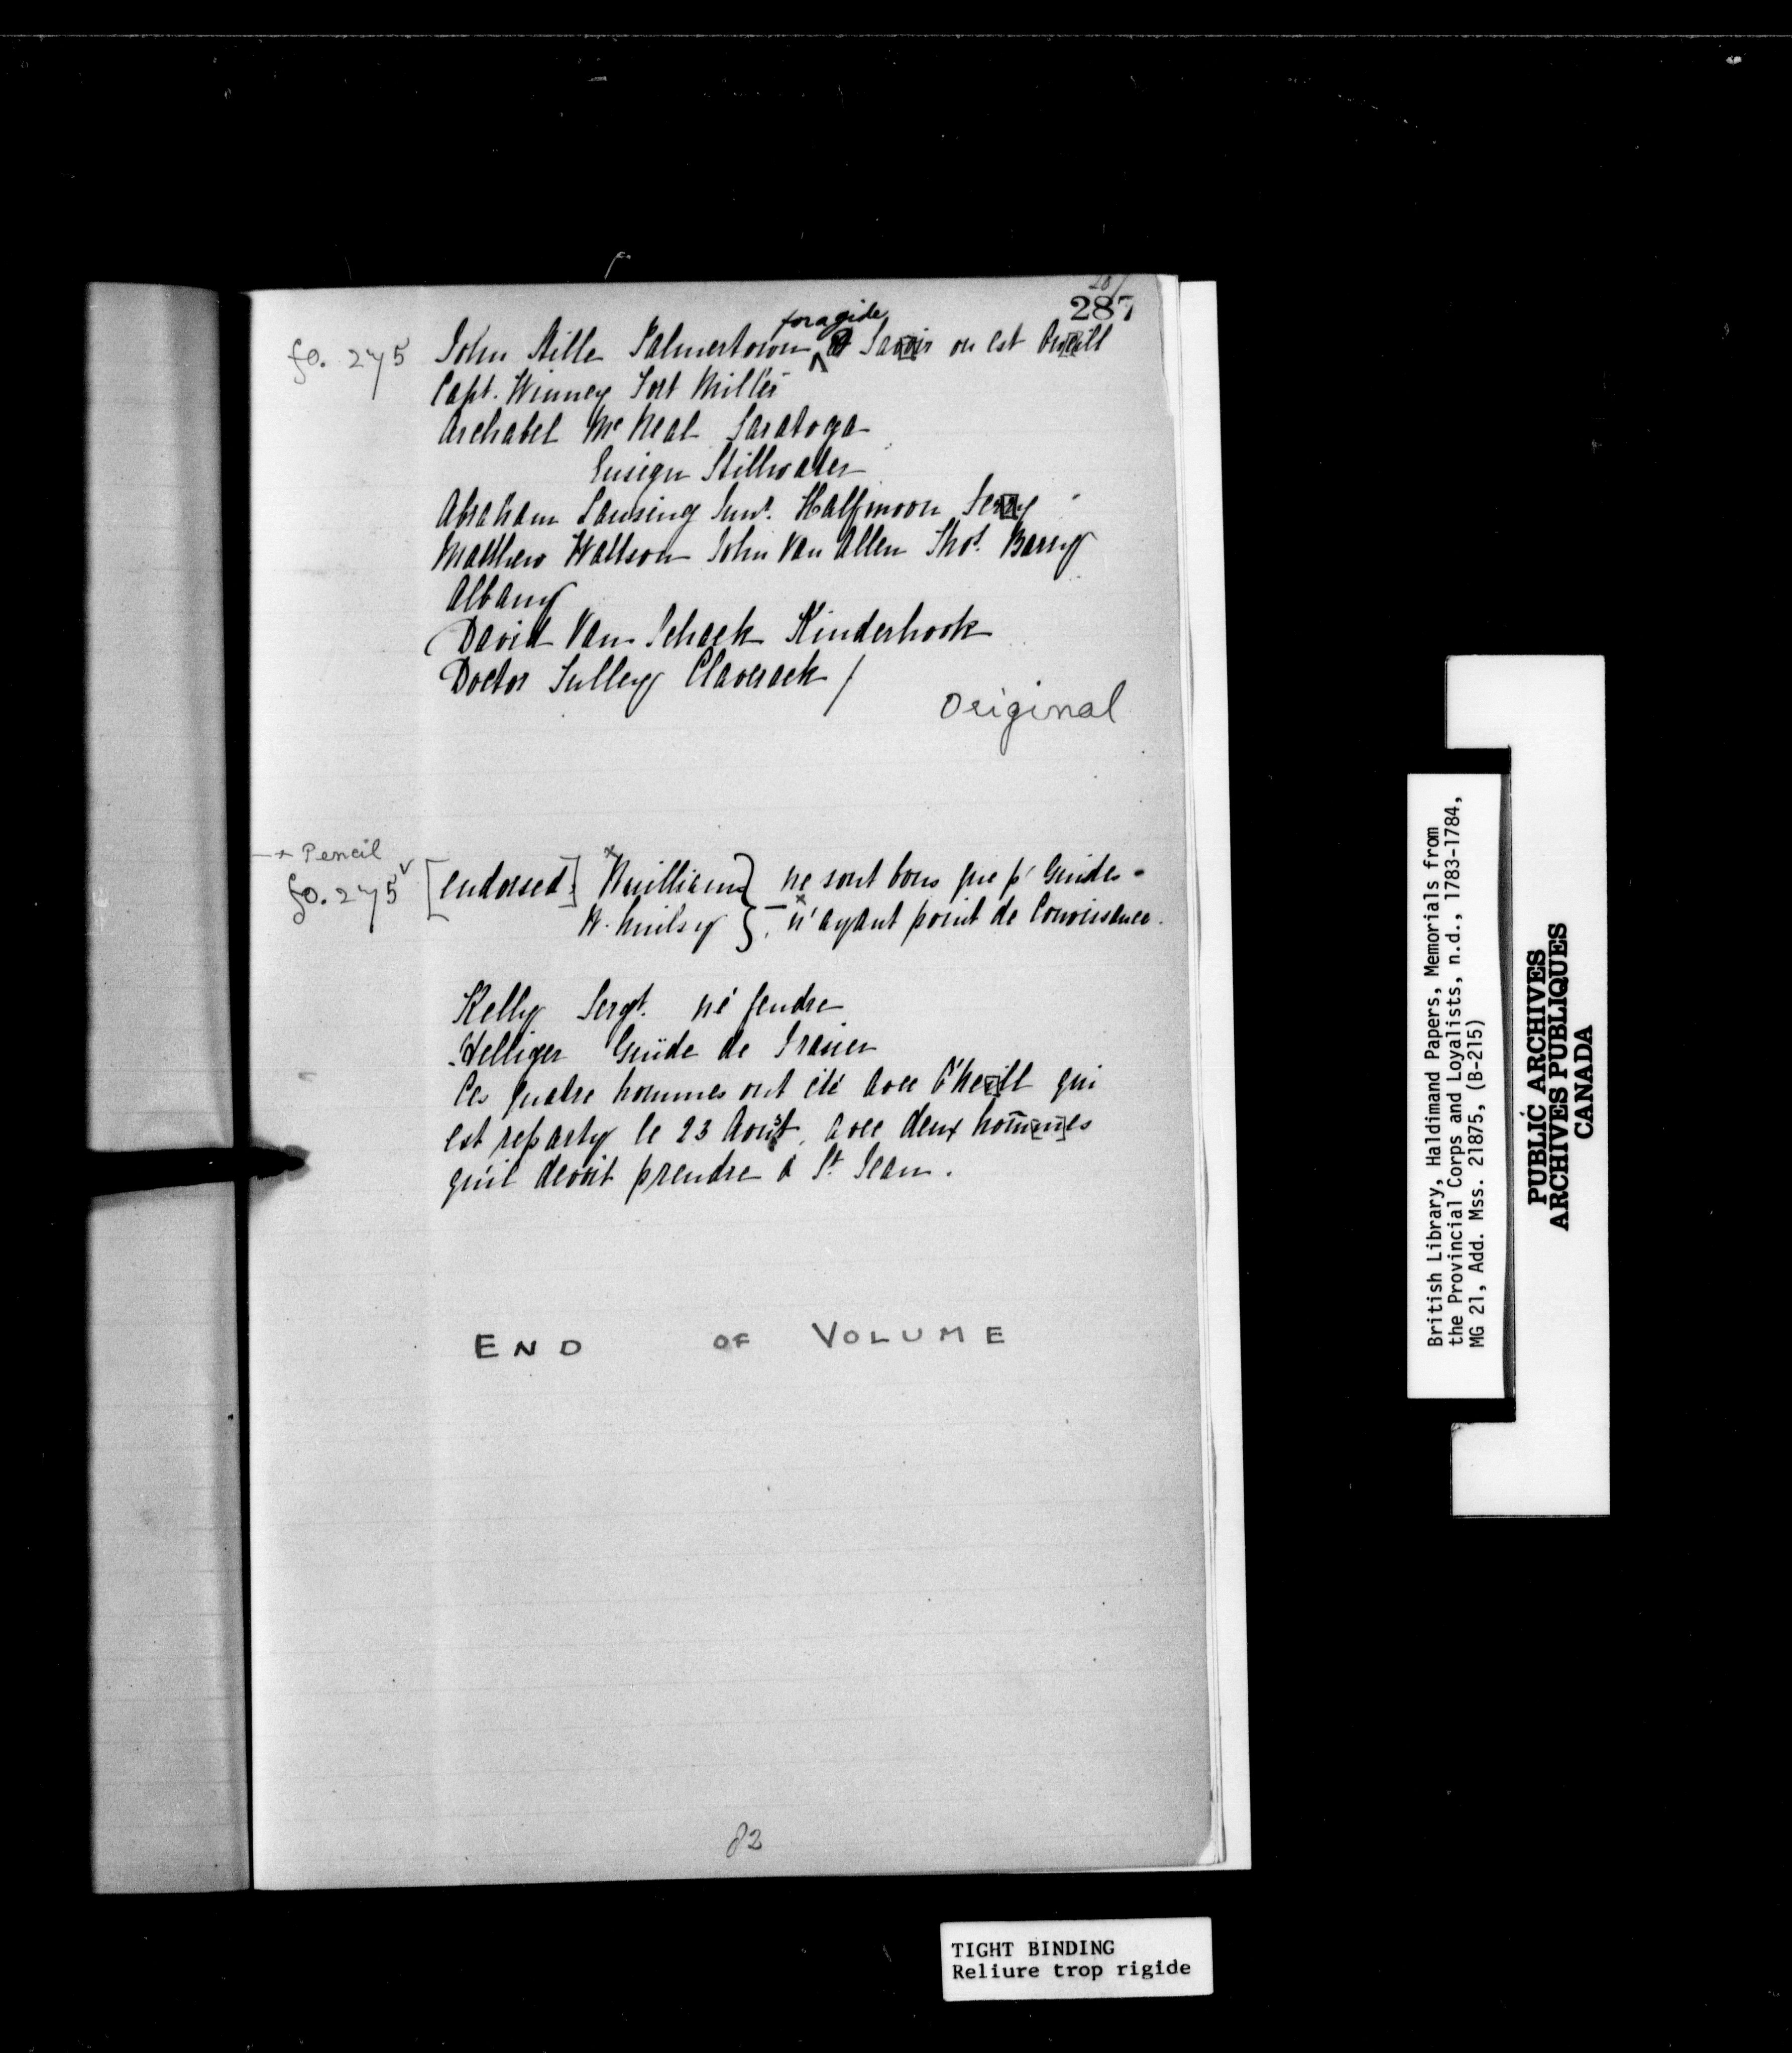 287
fo. 275 John Stille Palmertown for a gide Savoir ou est Oneill
Capt. Winney Fort Miller
Archabel Mc Neal Saratoga
Ensign Stillwater
Abraham Lansing Junr. Halfmoon Ferry
Matthew Wattson John Van Allen Thos. Barry
Albany
David Van Schack Kinderhook
Doctor Tulley Claverack /
Original
Pencil
fo. 275v [endorsed] Wuilliams } ne sont bons que pr Guides
W. Kuilsy } n'ayant point de Connoissance.
Kelly Sergt. né fendre
Helliger Guide de Frasier
Ces quatre hommes ont été avec O'Neill qui
est reparty le 23 Aoust, avec deux hommes
qu'il devoit prendre à St Jean.
END OF VOLUME
82
British Library, Haldimand Papers, Memorials from
the Provincial Corps and Loyalists, n.d., 1783-1784,
MG 21, Add. Mss. 21875, (B-215)
PUBLIC ARCHIVES
ARCHIVES PUBLIQUES
CANADA
TIGHT BINDING
Reliure trop rigide